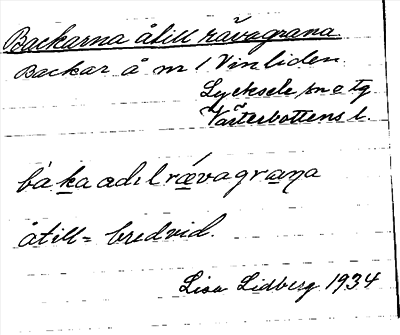 Backarna åtill rävagrana
Backar å m / Vinliden
Lycksele sn o tg
Västerbottens l.
båka adıl rævagraṇa
åtill = bredvid.
Lisa Lidberg 1934